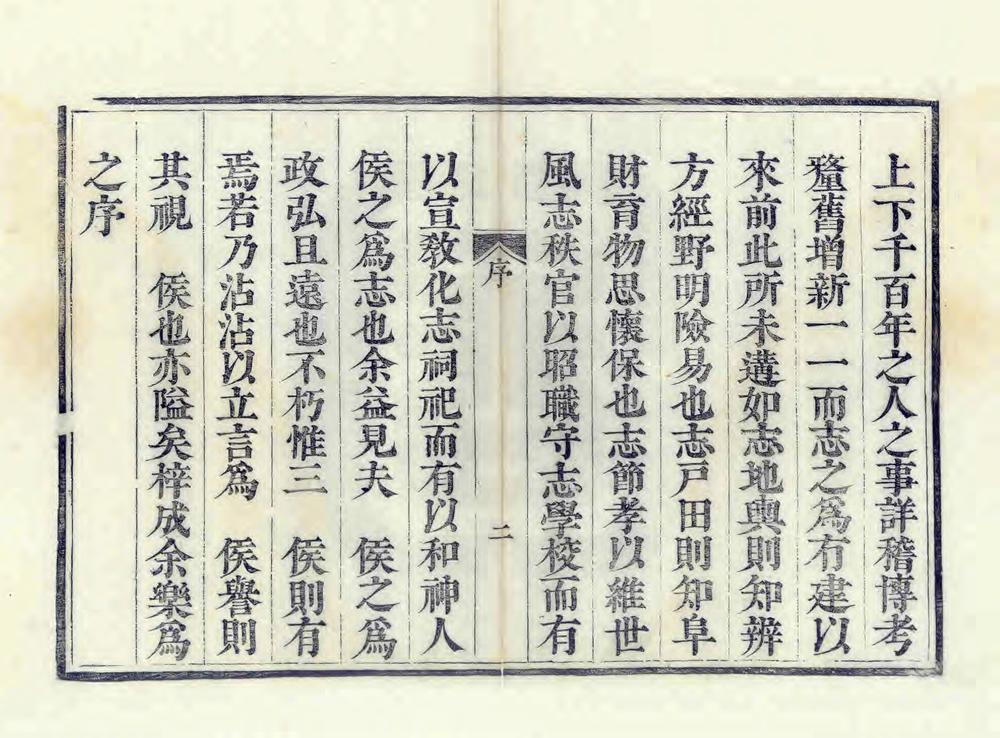 上下千百年之人之事詳稽博考
釐舊增新一一而志之為有建以
來前此所未遘如志地輿則知辨
方經野明險易也志戸田則知阜
財育物思懷保也志節孝以維世
風志秩官以昭職守志學校而有
序
二
以宣教化志祠祀而有以和神人
侯之為志也余益見夫 侯之為
政弘且遠也不朽惟三 侯則有
焉若乃沾沾以立言為 侯譽則
其視 侯也亦隘矣梓成余樂為
之序